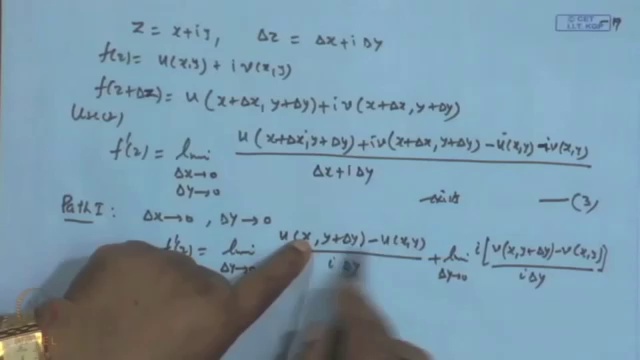 Z = x+iy, Δz = Δx+iΔy
f(z) = u(x,y) + i v(x,y)
f(z+Δz) = u(x+Δx, y+Δy) + i v(x+Δx, y+Δy)
f'(z) = lim Δx→0 Δy→0 u(x+Δx, y+Δy) + i v(x+Δx, y+Δy) - u(x,y) - i v(x,y) / Δx+iΔy
—(3)
Path I : Δx→0, Δy→0
f'(z) = lim Δy→0 u(x, y+Δy) - u(x,y) / iΔy + lim Δy→0 i[v(x,y+Δy) - v(x,y)] / iΔy